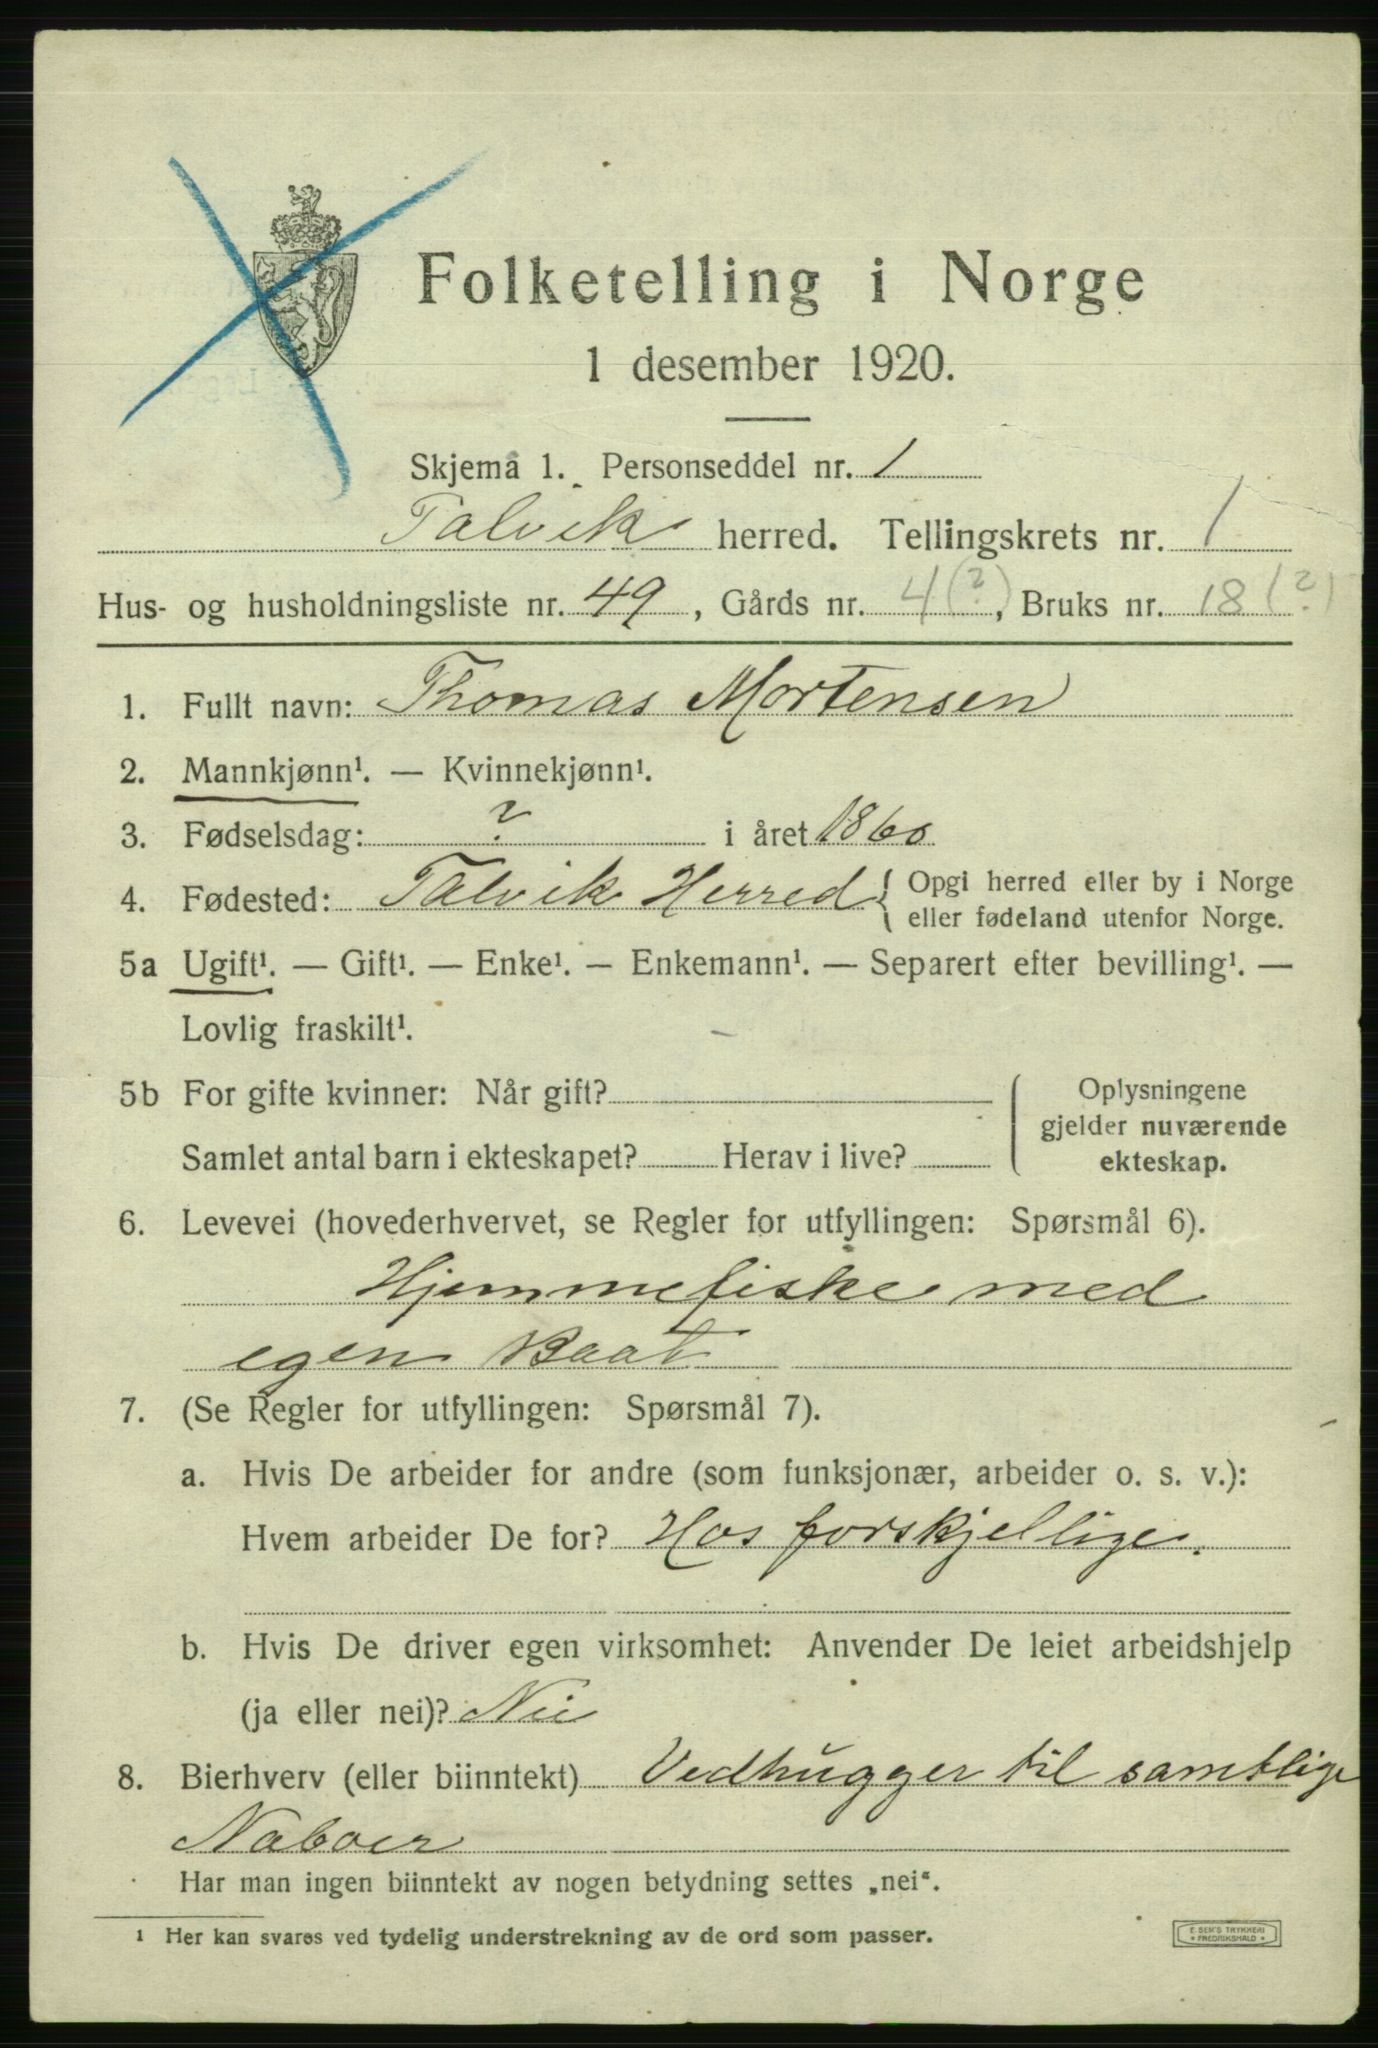 Folketelling i Norge
1 desember 1920.
Skjema 1. Personseddel nr. 1
Talvik herred. Tellingskrets nr. 1
Hus- og husholdningsliste nr. 49, Gårds nr. 4(?), Bruks nr. 18(?)
1. Fullt navn: Thomas Mortensen
2. Mannkjønn¹. — Kvinnekjønn¹.
3. Fødselsdag: ? i året 1860
4. Fødested: Talvik Herred { Opgi herred eller by i Norge
eller fødeland utenfor Norge.
5a Ugift¹. — Gift¹. — Enke¹. — Enkemann¹. — Separert efter bevilling¹. —
Lovlig fraskilt¹.
5b For gifte kvinner: Når gift?
Samlet antal barn i ekteskapet? Herav i live?
Oplysningene
gjelder nuværende
ekteskap.
6. Levevei (hovederhvervet, se Regler for utfyllingen: Spørsmål 6).
Hjemmefiske med
egen Baat
7. (Se Regler for utfyllingen: Spørsmål 7).
a. Hvis De arbeider for andre (som funksjonær, arbeider o. s. v.):
Hvem arbeider De for? Hos forskjellige.
b. Hvis De driver egen virksomhet: Anvender De leiet arbeidshjelp
(ja eller nei)? Nei
8. Bierhverv (eller biinntekt) Vedhugger til samtlige
Naboer
Har man ingen biinntekt av nogen betydning settes „nei“.
¹ Her kan svares ved tydelig understrekning av de ord som passer.
E. SEM'S TRYKKERI
* FREDRIKSHALD *